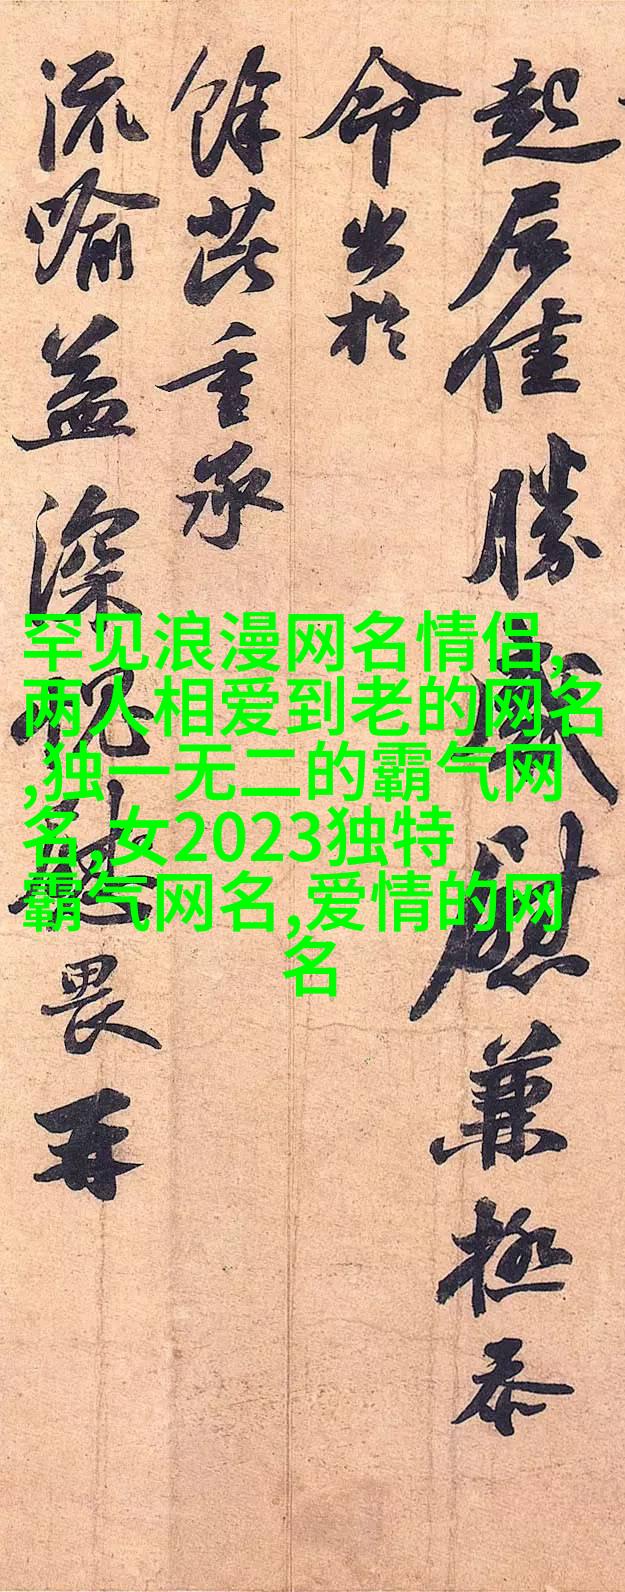 起居佳勝感慰兼極恭
命出於
餘茈重承
流喻益深愧慰畏再
罕见浪漫网名情侣,
两人相爱到老的网名
,独一无二的霸气网
名,女2023独特
霸气网名,爱情的网
名